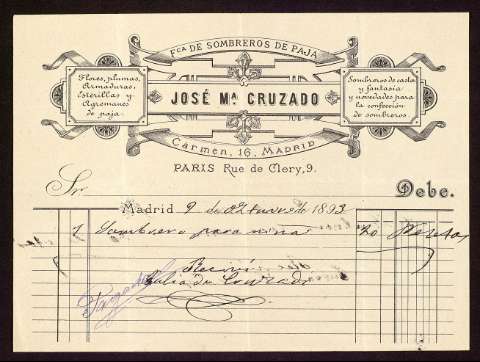 Fca DE SOMBREROS DE PAJA
Flores, plumas,
Armaduras,
Esterillas y
Agremanes
de paja.
JOSÉ Mª CRUZADO
Sombreros de casta
y fantasía
y novedades para
la confección
de sombreros.
Carmen, 16, MADRID
PARIS Rue de Clery, 9.
Sr.
Debe.
Madrid 9 de Octubre de 1893
1 Sombrero para niña 20 Pesetas
Recibí
de